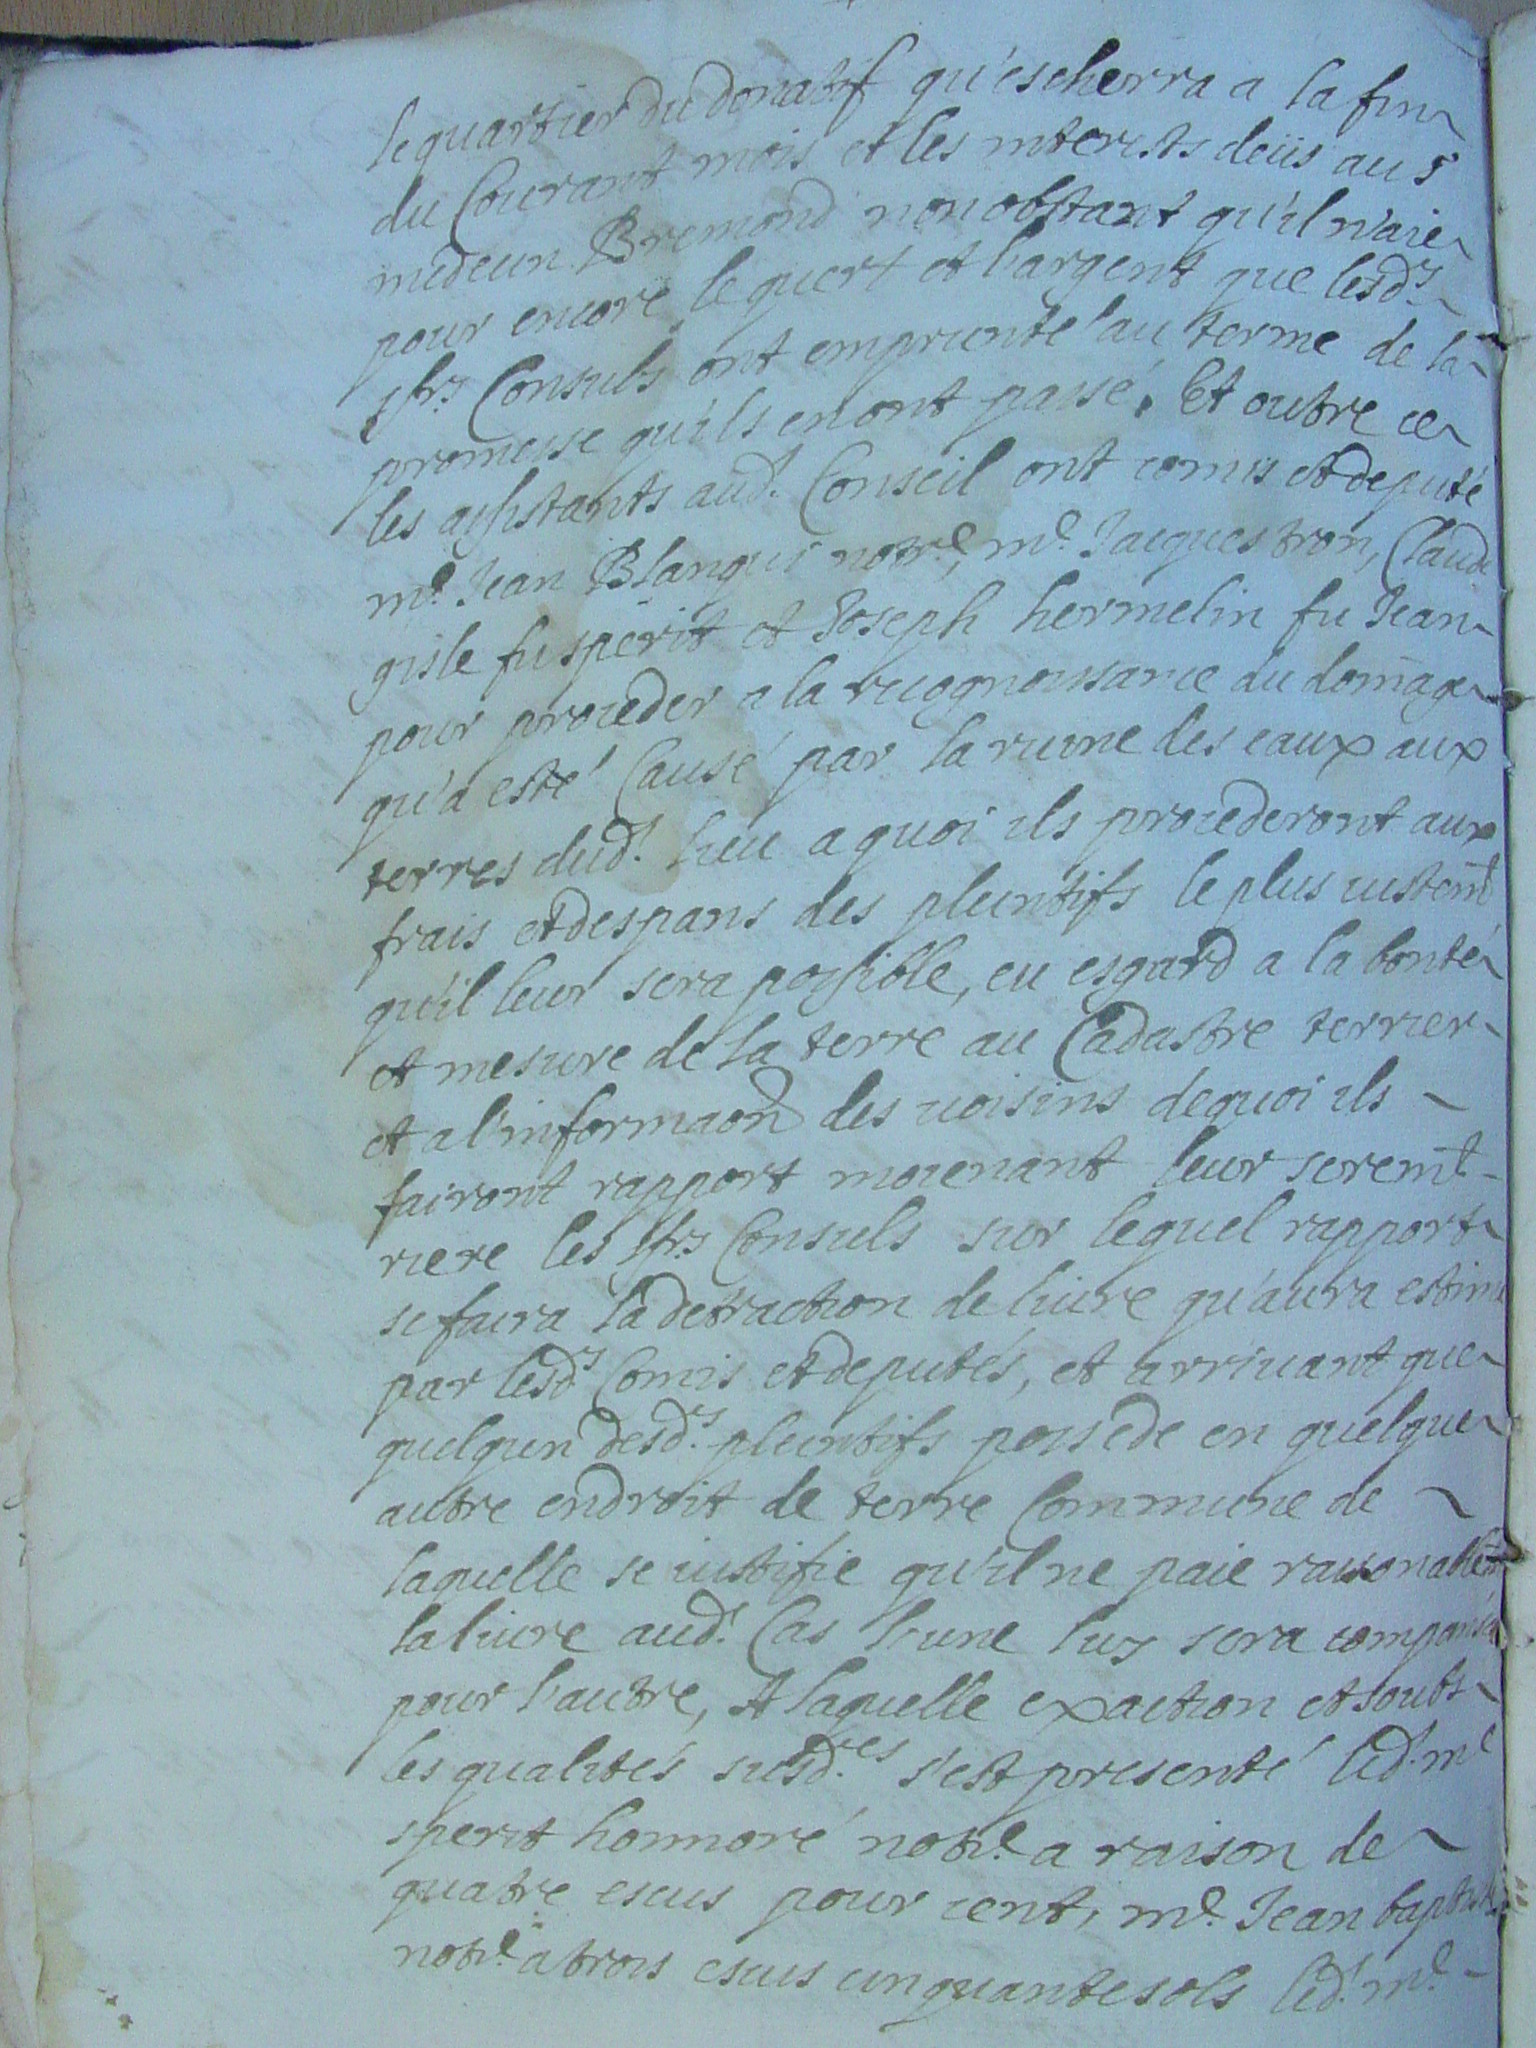 le quartier du donatif qu'escherra a la fin
du Courant mois et les interests deüs au sr
medecin Bremond nonobstant qu'il n'aie
pour encore le quert et l'argent que lesds
srs Consuls ont emprunté au terme de la
promesse qu'ils en ont passé. Et outre ce
les assistants aud. Conseil ont comis et deputé
me. Jean Blanqui notre, me. Jacques tron, Claude
gisle fu sperit et Joseph hermelin fu Jean
pour proceder a la recognoissance du domage
qu'a esté Causé par la ruine des eaux aux
terres dud. lieu a quoi ils procederont aux
frais et despans des pleintifs le plus iustemt
qu'il leur sera possible, eu esgard a la bonté
et mesure de la terre au Cadastre terrier
et a l'informaon des uoisins dequoi ils
fairont rapport moienant leur seremt
riere les srs Consuls sur lequel rapport
se faira la detraction de liure qu'aura estimé
par lesds Comis et deputés, et arriuant que
quelqun desds. pleintifs possede en quelque
autre endroit de terre Commune de
laquelle se iustifie qu'il ne paie raisonablemt
la liure aud. Cas l'une luy sera compensé
pour l'autre, A laquelle exaction et soubs
les qualités susd.es s'est presenté led. me
sperit honnoré notre. a raison de
quatre escus pour cent, me. Jean baptiste
notre. a trois escus cinquante sols led. me.